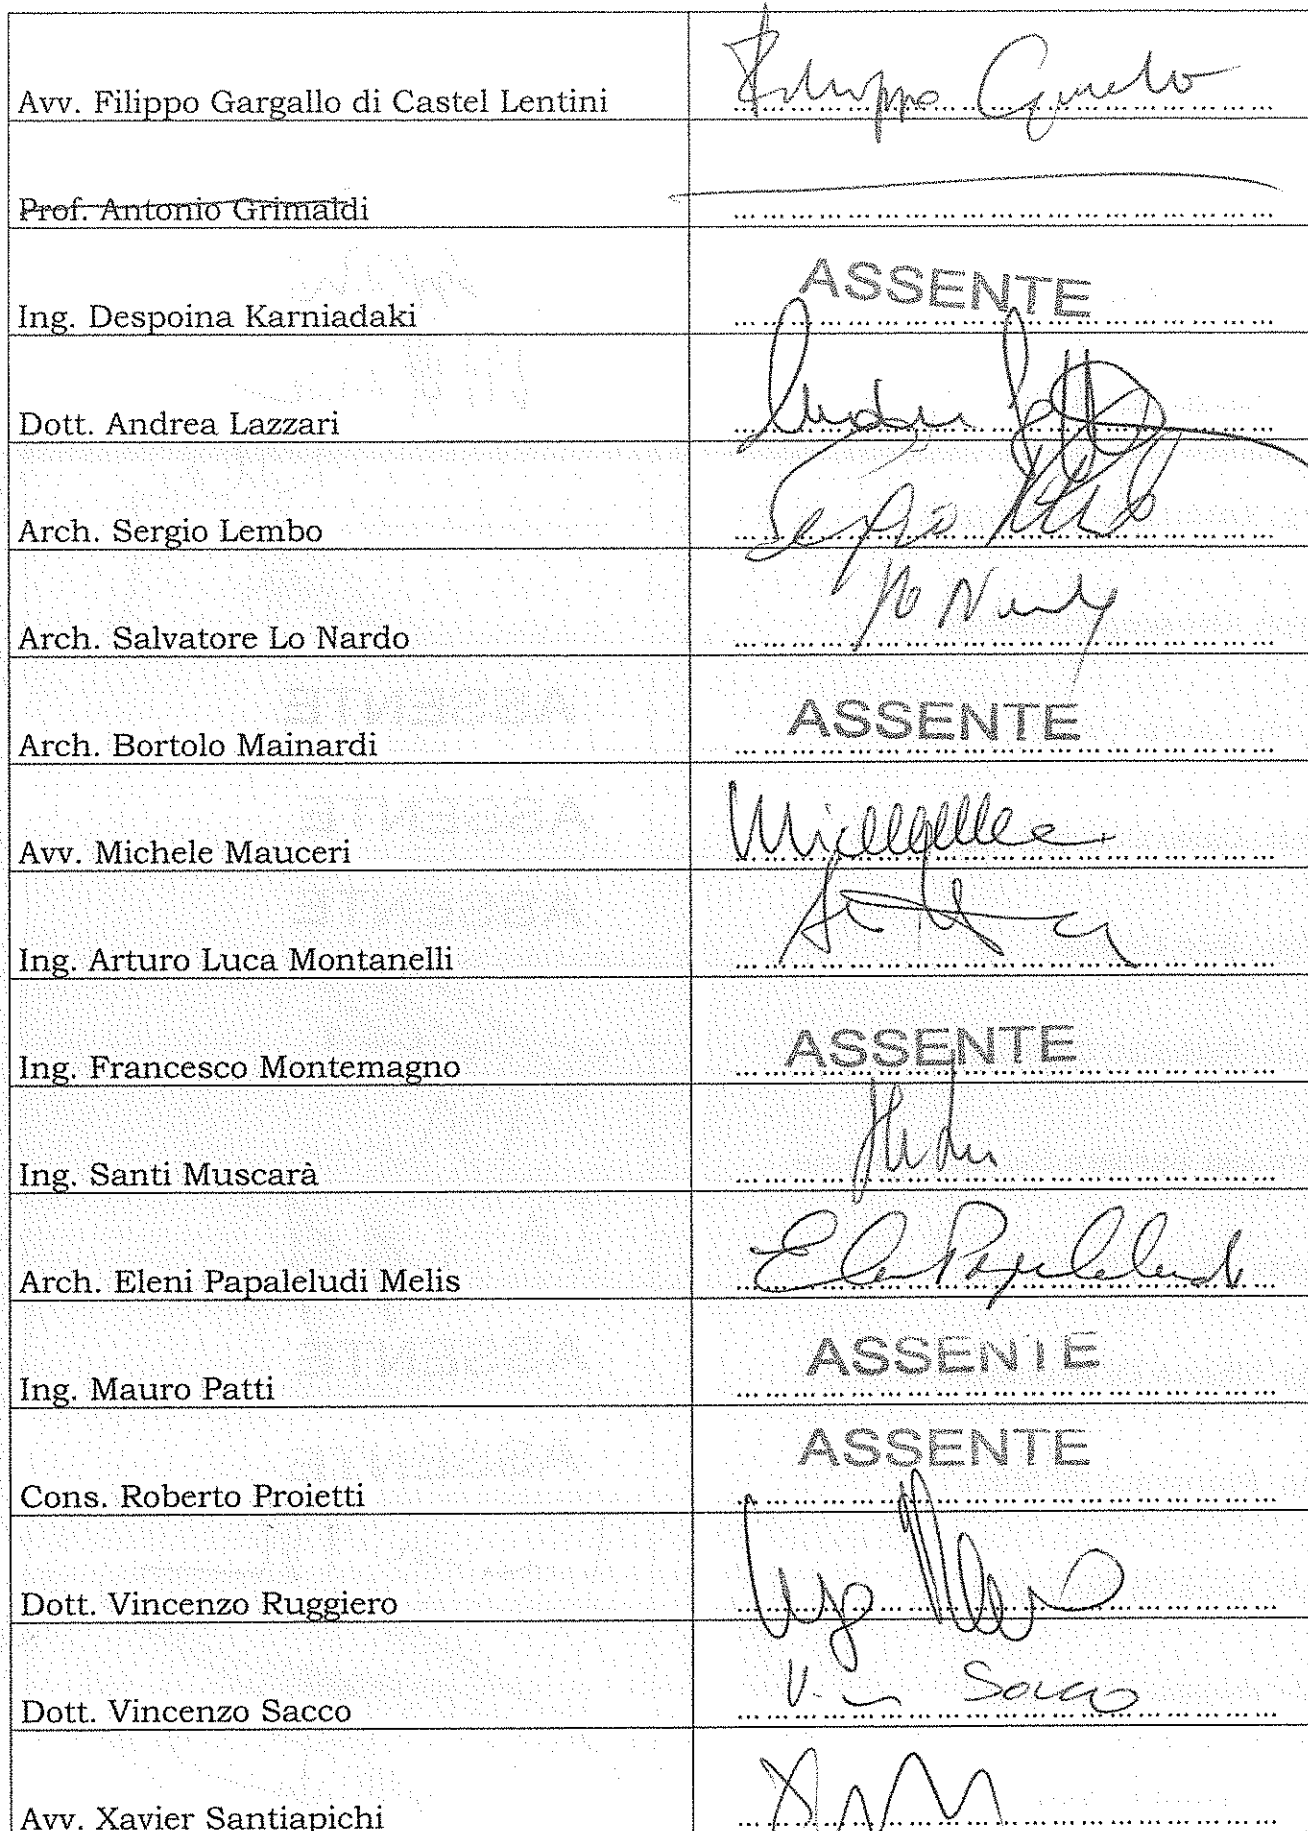 Avv. Filippo Gargallo di Castel Lentini
Filippo
Prof. Antonio Grimaldi
Ing. Despoina Karniadaki
ASSENTE
Dott. Andrea Lazzari
Arch. Sergio Lembo
Sergio
Arch. Salvatore Lo Nardo
Arch. Bortolo Mainardi
ASSENTE
Avv. Michele Mauceri
Ing. Arturo Luca Montanelli
Ing. Francesco Montemagno
ASSENTE
Ing. Santi Muscarà
Arch. Eleni Papaleludi Melis
Ing. Mauro Patti
ASSENTE
Cons. Roberto Proietti
ASSENTE
Dott. Vincenzo Ruggiero
Dott. Vincenzo Sacco
Sacco
Avv. Xavier Santiapichi